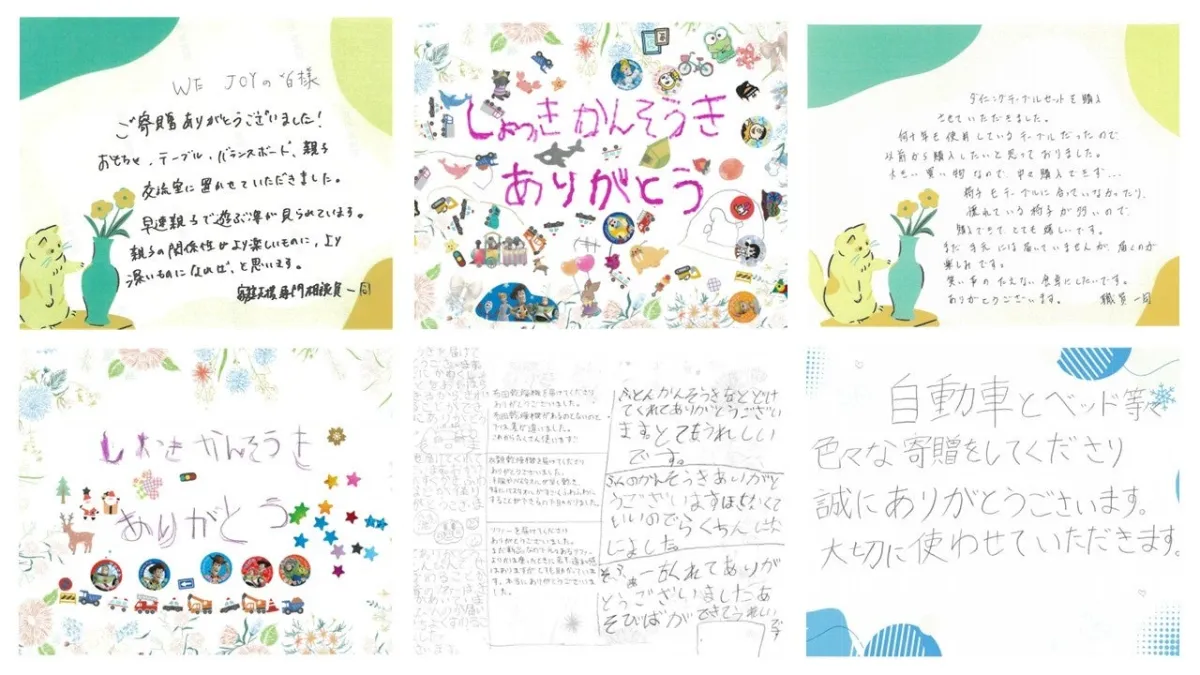 WE JOYの皆様
ご寄贈ありがとうございました!
おもちゃ、テーブル、バランスボード、親子
交流室に置かせていただきました。
早速親子で遊ぶ姿が見られています。
親子の関係性がより楽しいものに、より
深いものになれば、と思います。
家庭支援専門相談員一同
しょっきかんそうき
ありがとう
ダイニングテーブルセットを購入
させていただきました。
何十年も使用しているテーブルだったので、
以前から購入したいと思っておりました。
大きい買い物なので、中々購入できず…
椅子もテーブルに合っていなかったり、
壊れている椅子が多いので、
購入できて、とても嬉しいです。
まだ手元には届いていませんが、届くのが
楽しみです。
笑い声のたえない食卓にしたいです。
ありがとうございます。 職員一同
しょっきかんそうき
ありがとう
布団乾燥機を届けてくださり
ありがとうございました。
これからたくさん使います!
衣類乾燥機を届けてくださり
ありがとうございました。
ソファーを届けてくださり
ありがとうございました。
ふとんかんそうきをとどけ
てくれてありがとうござい
ます。とてもうれしい
です。
ふくのかんそうきありがと
うございますほさなくて
いいのでらくちんにな
りました。
そふぁーくれてありが
とうございましたあ
そびばができてうれしい
です
自動車とベッド等々
色々な寄贈をしてくださり
誠にありがとうございます。
大切に使わせていただきます。